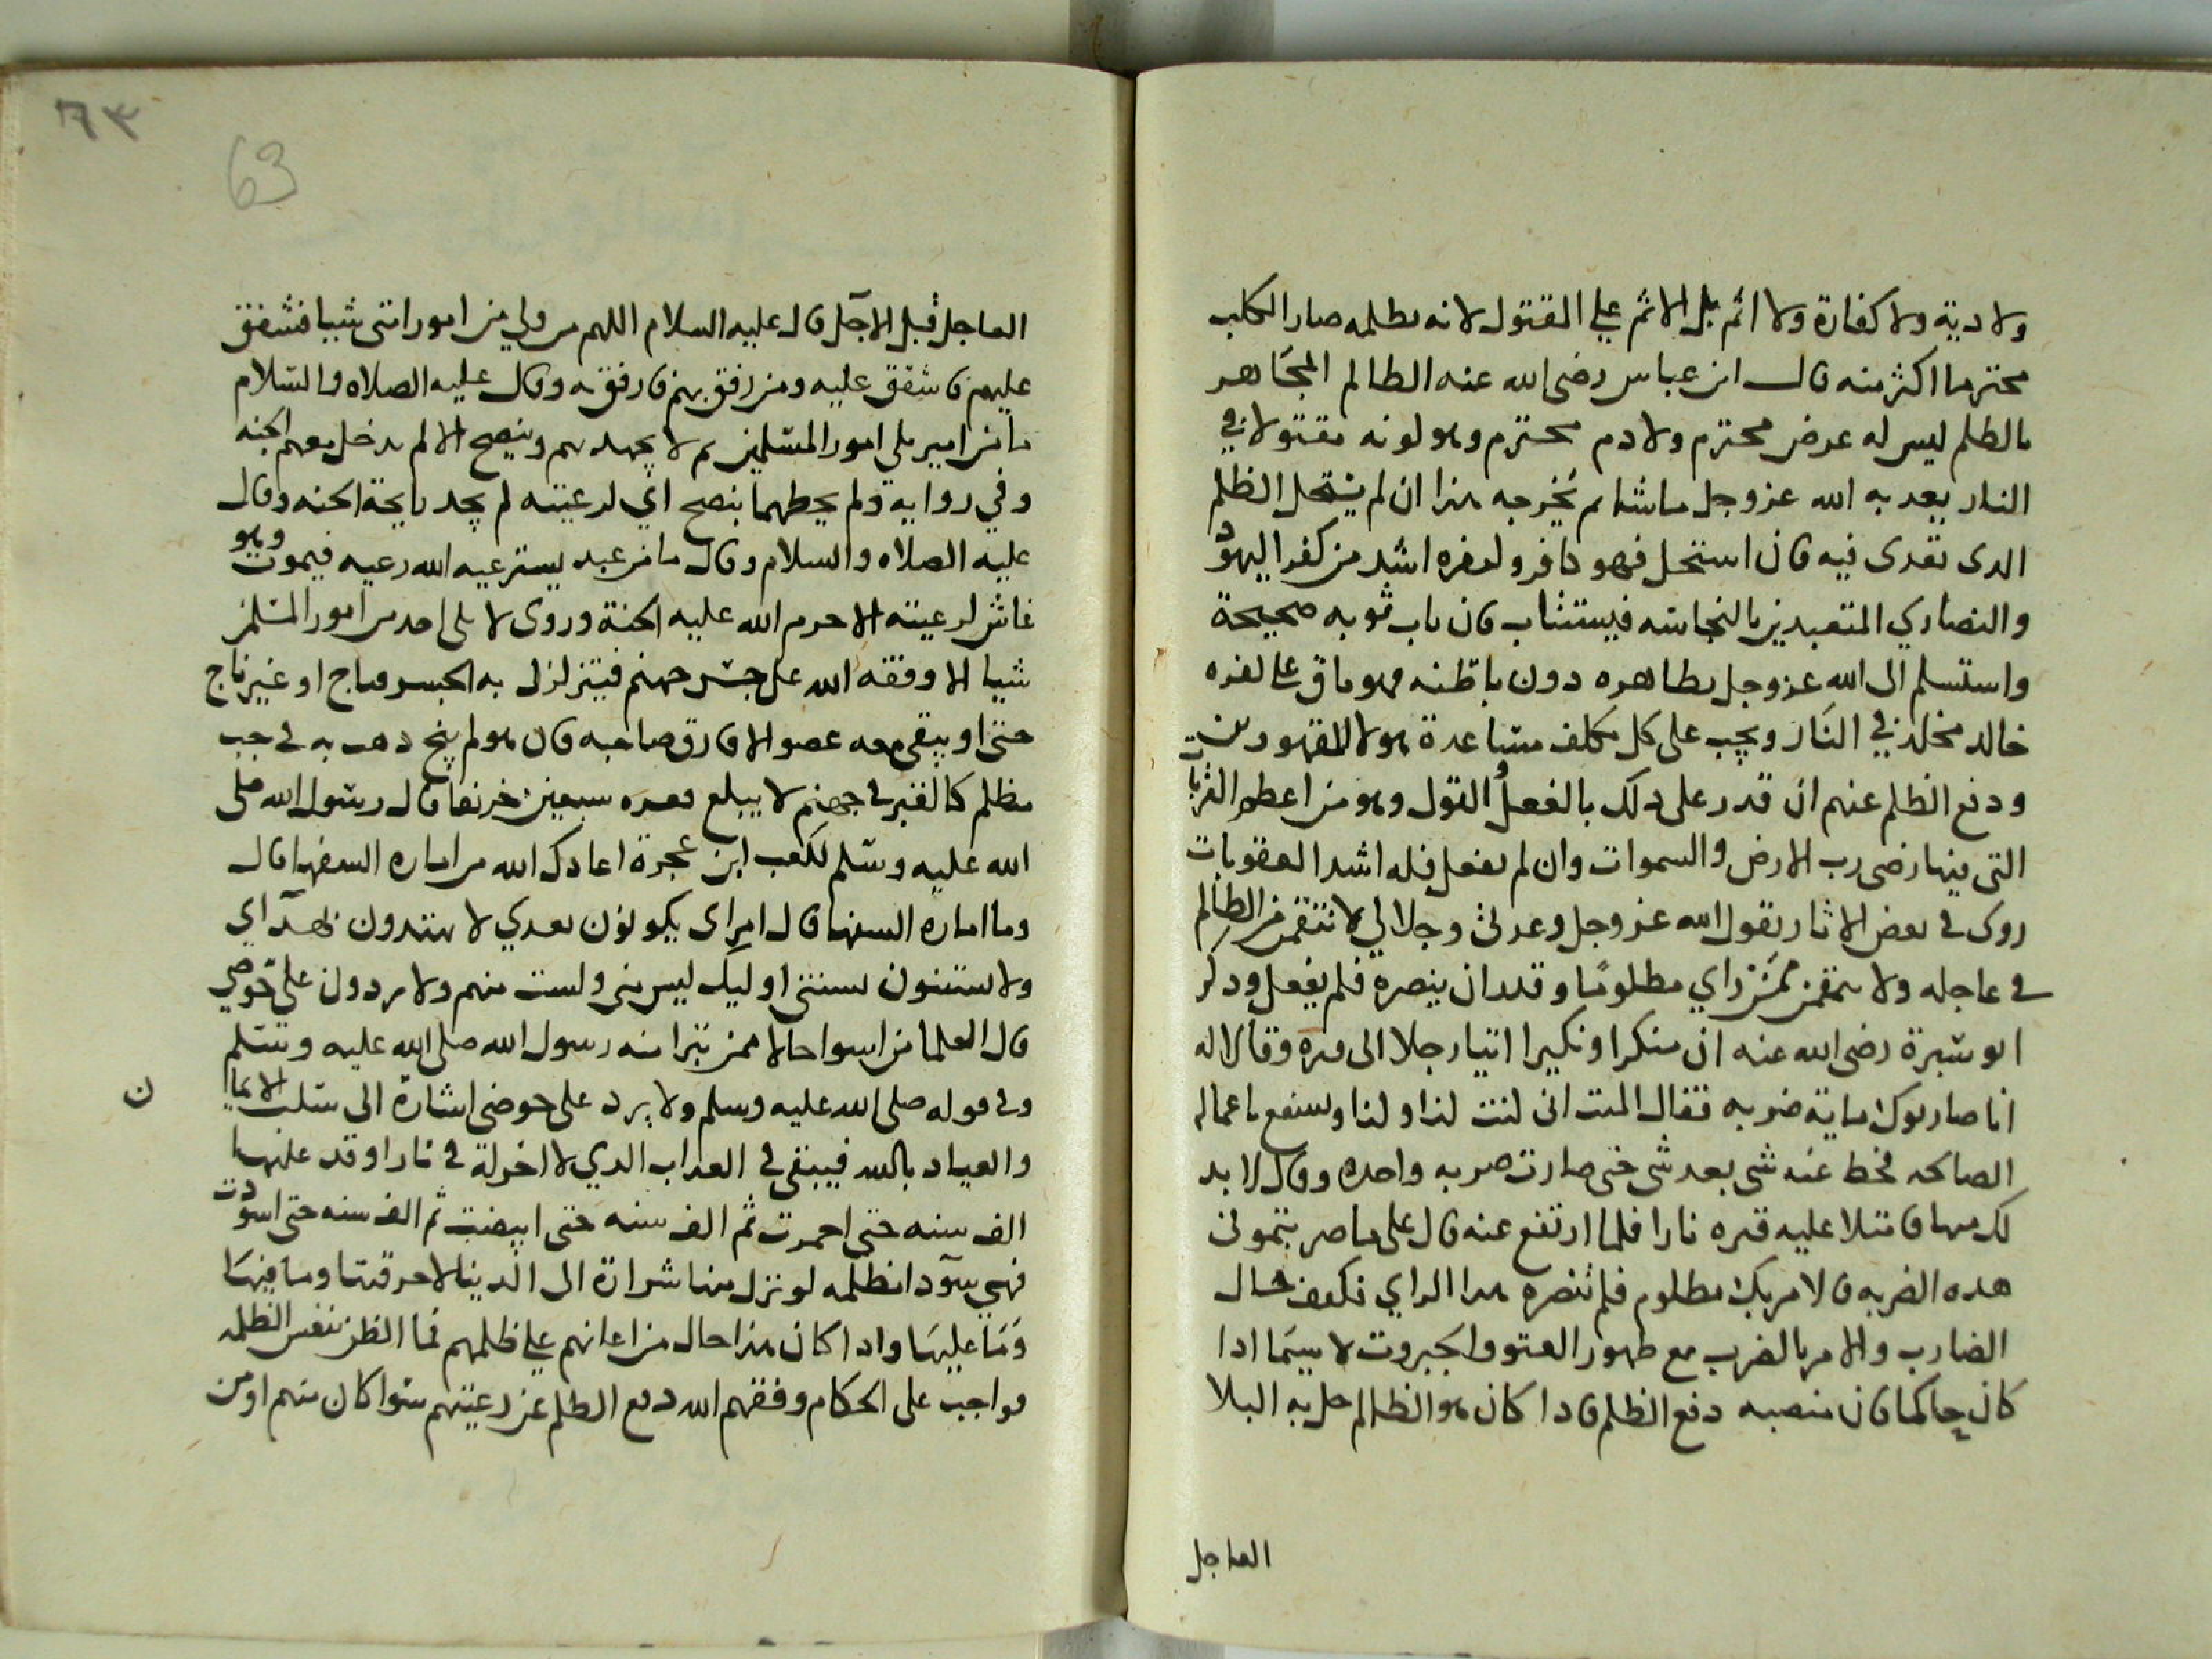 ولا دية ولا كفارة ولا اثم بل الاثم على المقتول لانه بظلمه صار الكلب
محترما اكثر منه قال ابن عباس رضى الله عنه الظالم المجاهر
بالظلم ليس له عرض محترم ولا دم محترم وهو لونه مقتولا في
النار يعد به الله عز وجل ما شا ثم يخرجه هذا ان لم يستحل الظلم
الدى تعدى فيه فان استحل فهو كافر وكفره اشد من كفر اليهود
والنصاري المتعبدين بالنجاسه فيستتاب فان تاب توبه صحيحة
واستسلم الى الله عز وجل بظاهره دون باطنه فهو باق على كفره
خالد مخلد في النار ويجب على كل مكلف مساعدة هولا المقهورين
ودفع الظلم عنهم ان قدر على دلك بالفعل او القول وهو من اعظم القربات
التى فيها رضى رب الارض والسموات وان لم يفعل فله اشد العقوبات
روى في بعض الاثار يقول الله عز وجل وعزتى وجلالي لانتقمن من الظالم
في عاجله ولانتقمن ممن راي مظلومًا وقدر ان ينصره فلم يفعل ودكر
ابو ميسرة رضى الله عنه ان منكرا ونكيرا اتيا رجلا الى قبره وقالا له
انا ضاربوك ماية ضربه فقال الميت انى كنت كذا وكذا وتشفع باعماله
الصالحه فحط عنه شى بعد شى حتى صارت ضربه واحده وقال لا بد
لك منها فامتلا عليه قبره نارا فلما ارتفع عنه قال على ما ضربتمونى
هده الضربه قالا مر بك مظلوم فلم تنصره هدا الراي فكيف حال
الضارب والامر بالضرب مع ظهور العتو والجبروت لا سيما ادا
كان حاكما فان منصبه دفع الظلم فادا كان هو الظالم حل به البلا
العاجل
٦٣
63
العاجل قبل الاجل قال عليه السلام اللهم من ولي من امور امتى شيا فشفق
عليهم فاشفق عليه ومن رفق بهم فارفق به وقال عليه الصلاه والسلام
ما من امير يلى امور المسلمين ثم لا يجهد لهم وينصح الا لم يدخل معهم الجنه
وفي رواية ولم يحطهما بنصح اي لرعيته لم يجد رايحة الجنه وقال
عليه الصلاه والسلام وقال ما من عبد يسترعيه الله رعيه فيموت وهو
غاش لرعيته الا حرم الله عليه الجنة وروى لا يلى احد من امور المسلمين
شيا الا وقفه الله على جسر جهنم فيتزلزل به الجسر فناج او غير ناج
حتى او يبقى معه عضو الا فارق صاحبه فان هو لم ينج دهب به في جب
مظلم كالقبر في جهنم لا يبلغ قعره سبعين خريفا قال رسول الله صلى
الله عليه وسلم لكعب ابن عجرة اعادك الله من اماره السفها قال
وما اماره السفها قال امراى يكونون بعدي لا يهتدون بهداي
ولا يستنون بسنتى اوليك ليس منى ولست منهم ولا يردون على حوضي
قال العلما من اسوا حالا ممن تبرا منه رسول الله صلى الله عليه وسلم
وفي قوله صلى الله عليه وسلم ولا يرد على حوضى اشارة الى سلب الايما
ن
والعياد بالله فيبقى في العداب الدي لا اخر له في نار اوقد عليها
الف سنه حتى احمرت ثم الف سنه حتى ابيضت ثم الف سنه حتى اسودت
فهي سودا مظلمه لو نزل منها شرارة الى الدنيا لاحرقتها وما فيها
وما عليها وادا كان هذا حال من اعانهم على ظلمهم فما الظن بنفس الظلمه
فواجب على الحكام وفقهم الله دفع الظلم عن رعيتهم سوا كان منهم او من